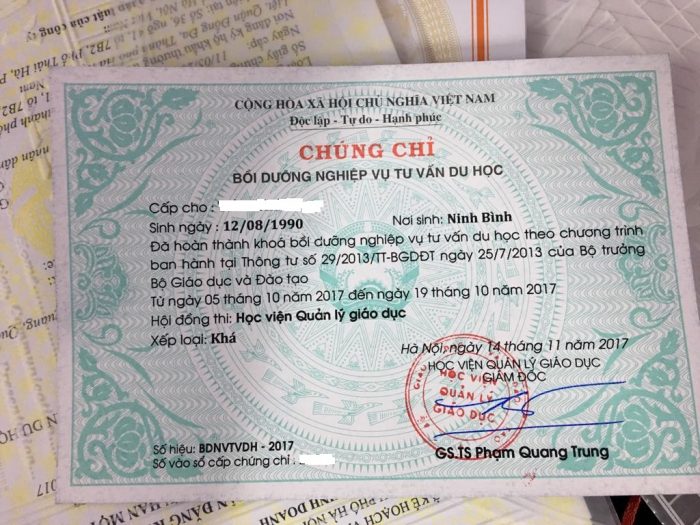 CỘNG HÒA XÃ HỘI CHỦ NGHĨA VIỆT NAM
Độc lập - Tự do - Hạnh phúc
CHỨNG CHỈ
BỒI DƯỠNG NGHIỆP VỤ TƯ VẤN DU HỌC
Cấp cho :
Sinh ngày : 12/08/1990 Nơi sinh: Ninh Bình
Đã hoàn thành khoá bồi dưỡng nghiệp vụ tư vấn du học theo chương trình
ban hành tại Thông tư số 29/2013/TT-BGDĐT ngày 25/7/2013 của Bộ trưởng
Bộ Giáo dục và Đào tạo
Từ ngày 05 tháng 10 năm 2017 đến ngày 19 tháng 10 năm 2017
Hội đồng thi: Học viện Quản lý giáo dục
Xếp loại: Khá
Hà Nội, ngày 14 tháng 11 năm 2017
HỌC VIỆN QUẢN LÝ GIÁO DỤC
GIÁM ĐỐC
HỌC VIỆN
QUẢN LÝ
GIÁO DỤC
GS.TS Phạm Quang Trung
Số hiệu: BDNVTVDH - 2017
Số vào sổ cấp chứng chỉ :